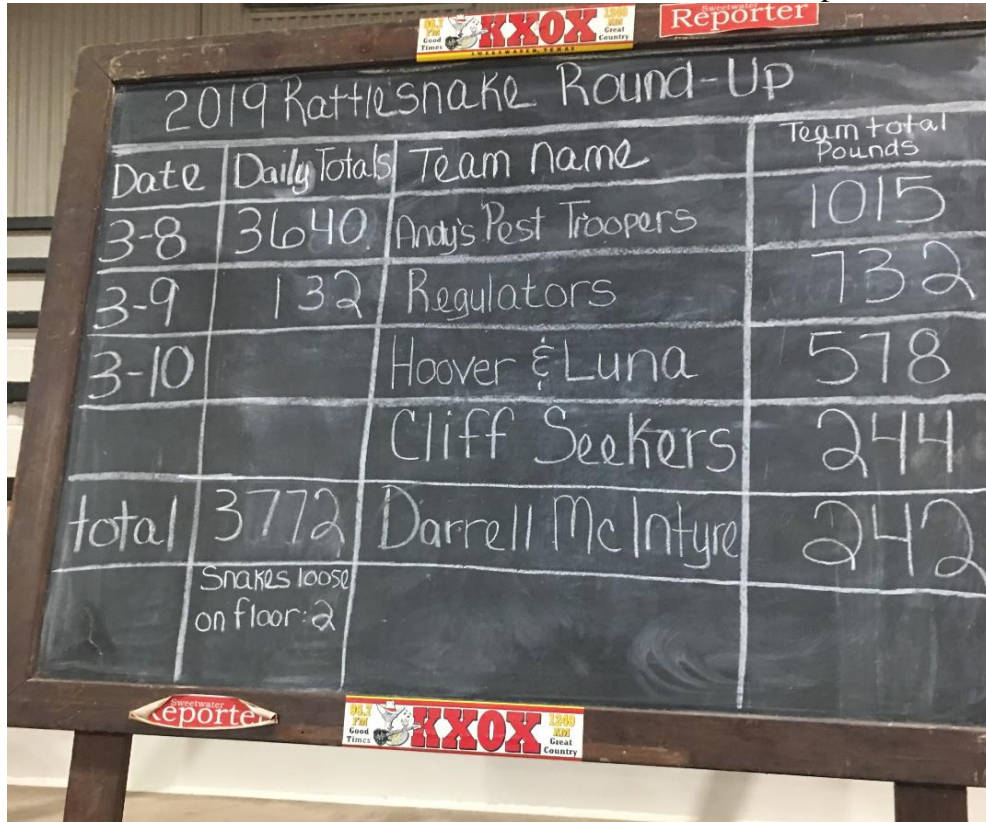 96.7 FM Good Times KXOX 1240 AM Great Country
SWEETWATER, TEXAS
Sweetwater Reporter
2019 Rattlesnake Round-Up
Date Daily Totals Team name Team total Pounds
3-8 3640 Andy's Pest Troopers 1015
3-9 132 Regulators 732
3-10 Hoover & Luna 578
Cliff Seekers 244
total 3772 Darrell McIntyre 242
Snakes loose
on floor: 2
Sweetwater
Reporter
96.7 FM Good Times KXOX 1240 AM Great Country